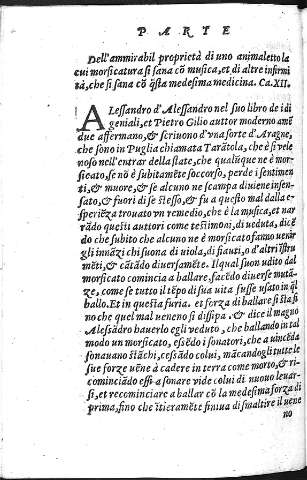 PARTE
Dell'ammirabil proprietà di uno animaletto la
cui morsicatura si sana cõ musica, et di altre infirmi
tà, che si sana cõ q̃sta medesima medicina. Ca.XII.
ALessandro d'Alessandro nel suo libro de i di
geniali, et Pietro Gilio auttor moderno ame
due affermano, & scriuono d'vna sorte d'Aragne,
che sono in Puglia chiamata Tarãtola, che è sì vele
noso nell'entrar della state, che qualũque ne è mor-
sicato, se nõ è subitamẽte soccorso, perde i sentimen
ti, & muore, & se alcuno ne scampa diuiene insen-
sato, & fuori di se stesso, & fu a questo mal dalla e-
speriẽza trouato vn remedio, che è la musica, et nar
rãdo questi auttori come testimoni, di ueduta, dicẽ
do che subito che alcuno ne è morsicato fanno uenir
gli innãzi chi suona di uiola, di fiauti, o d'altri istru
mẽti, & cãtãdo diuersamẽte. Il qual suon udito dal
morsicato comincia a ballare, facẽdo diuerse mutã-
ze, come se tutto il tẽpo di sua uita fusse usato in q̃l
ballo. Et in questa furia, et forza di ballare si sta fi
no che quel mal ueneno si dissipa. & dice il magno
Alessãdro hauerlo egli veduto, che ballando in tal
modo un morsicato, essẽdo i sonatori, che a uicẽda
sonauano stãchi, cessãdo colui, mãcandogli tutte le
sue forze uẽne à cadere in terra come morto, & ri-
cominciãdo essi a sonare vide colui di nuouo leuar-
si, et recominciare a ballar cõ la medesima forza di
prima, fino che ĩtieramẽte finiua di smaltire il uene
no